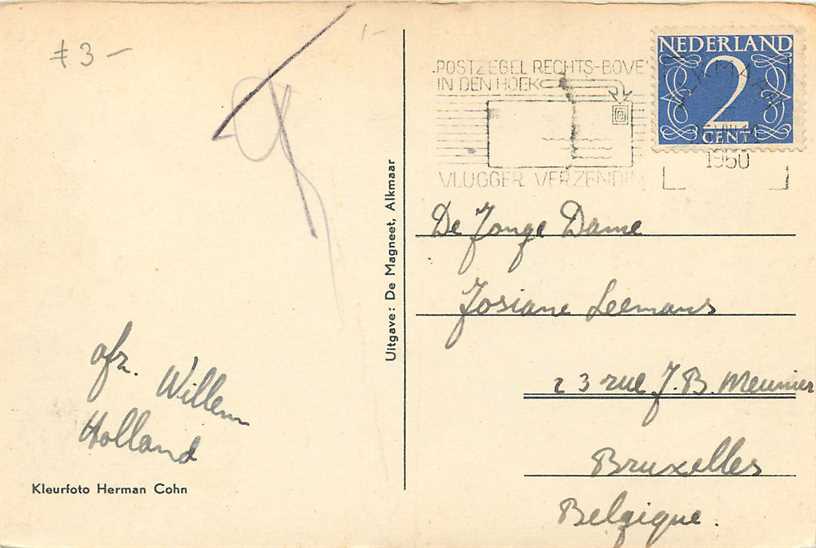 ≠ 3 -
1-
.POSTZEGEL RECHTS-BOVE
IN DEN HOEK
VLUGGER VERZENDIN
NEDERLAND
2
CENT
ALKMAAR
1960
Uitgave: De Magneet, Alkmaar
De Jonge Dame
Josiane Leemans
23 rue J.B. Meunier
Bruxelles
Belgique.
afz. Willem
Holland
Kleurfoto Herman Cohn